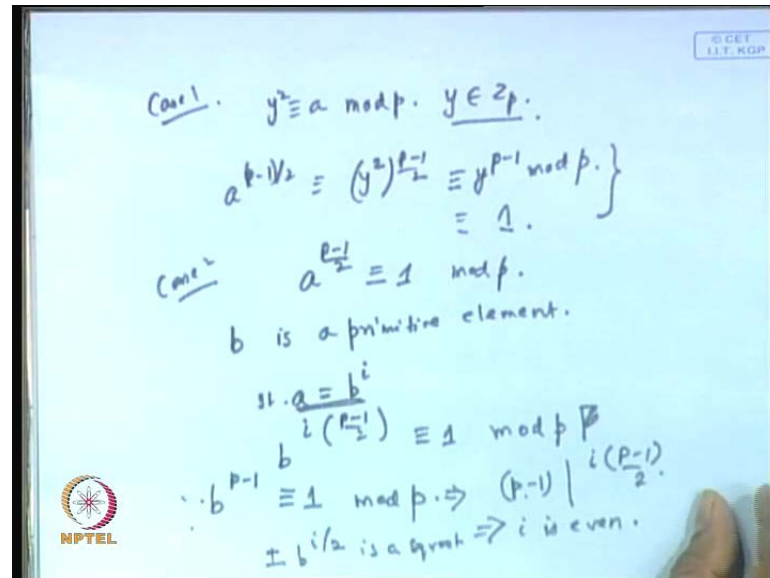 © CET
I.I.T. KGP
Case 1. y² ≡ a mod p. y ∈ Zp.
a^(p-1)/2 ≡ (y²)^(p-1)/2 ≡ y^(p-1) mod p. }
≡ 1.
Case 2 a^(p-1)/2 ≡ 1 mod p.
b is a primitive element.
st. a = b^i
b^i(p-1)/2 ≡ 1 mod p
∵ b^(p-1) ≡ 1 mod p. ⇒ (p-1) | i(p-1)/2.
± b^(i/2) is a sqroot ⇒ i is even.
NPTEL